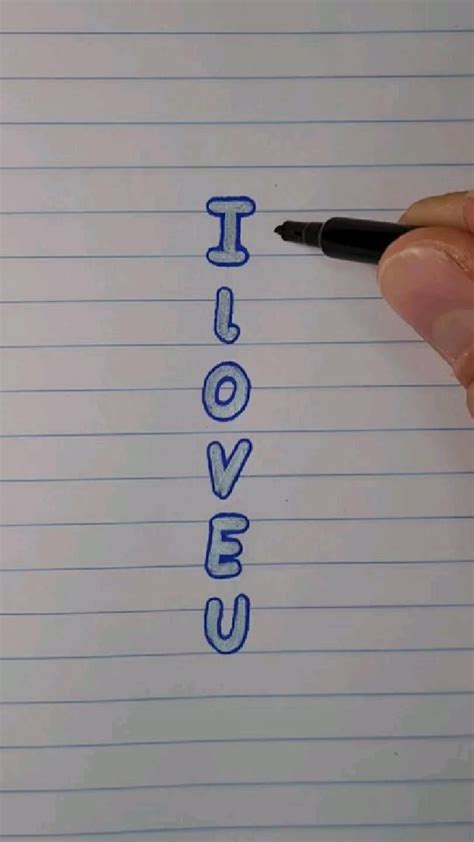 I
L
O
V
E
U